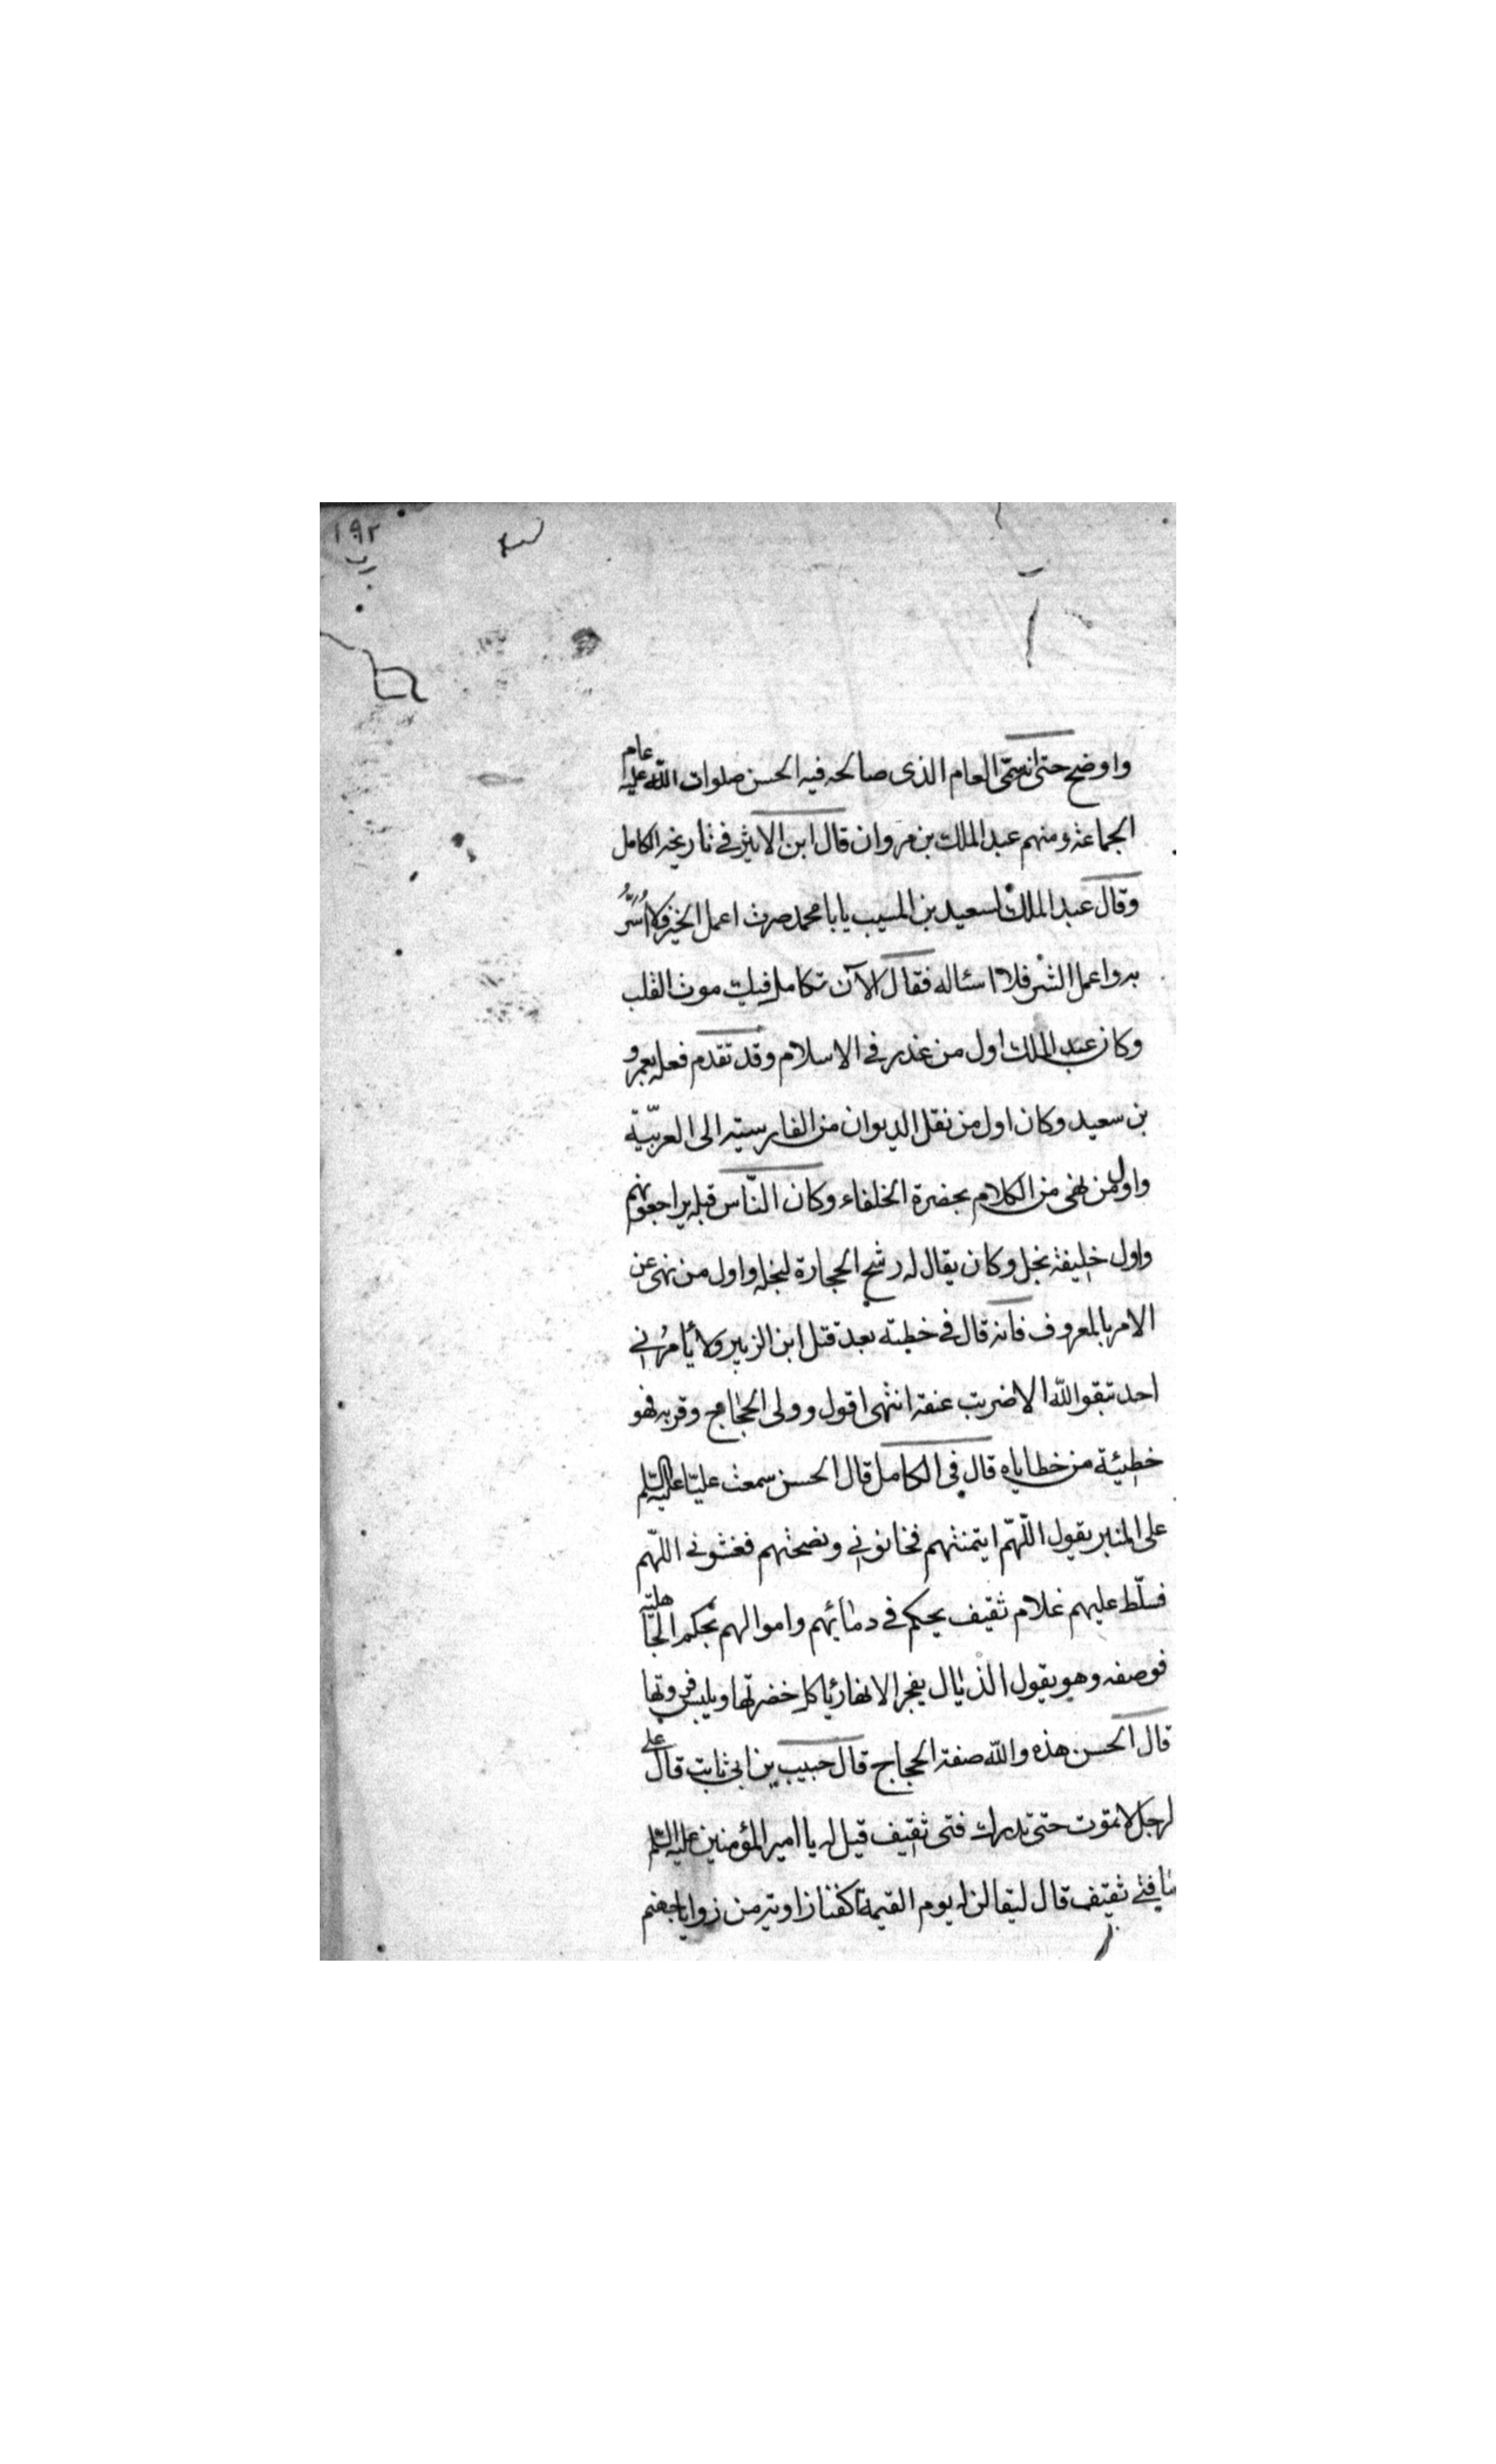 ١٩٢
واوضح حتى انه سمّى العام الذى صالحه فيه الحسن صلوات اللّه عليه عام
الجماعة ومنهم عبد الملك بن مروان قال ابن الاثير فى تاريخه الكامل
وقال عبد الملك لسعيد بن المسيب يابا محمد صرت اعمل الخير فلا اُسَرُّ
به واعمل الشر فلا اسئاله فقال الآن تكامل فيك موت القلب
وكان عبد الملك اول من غدر فى الاسلام وقد تقدم فعله بعمرو
بن سعيد وكان اول من نقل الديوان من الفارسية الى العربيّة
واول من نهى من الكلام بحضرة الخلفاء وكان النّاس قبله يراجعونهم
واول خليفة بخل وكان يقال له رشح الحجارة لبخله واول من نهى عن
الامر بالمعروف فانه قال فى خطبته بعد قتل ابن الزبير ولا يأمرُنى
احد بتقو اللّه الا ضربت عنقه انتهى اقول وولى الحجاج وقربه فهو
خطيئة من خطاياه قال فى الكامل قال الحسن سمعت عليّا عليه السّلم
على المنبر يقول اللّهمّ ايتمنتهم فخانونى ونصحتهم فغشونى اللّهم
فسلّط عليهم غلام ثقيف يحكم فى دمائهم واموالهم بحكم الجاهليّه
فوصفه وهو يقول الذيال يفجر الانهار ياكل خضرتها ويلبس فروتها
قال الحسن هذه واللّه صفة الحجاج قال حبيب بن ابى ثابت قال على
لرجل لا تموت حتى تدرك فتى ثقيف قيل له يا امير المؤمنين عليه السّلم
ما فتى ثقيف قال ليقالن له يوم القيمة اكفنا زاوية من زوايا جهنم